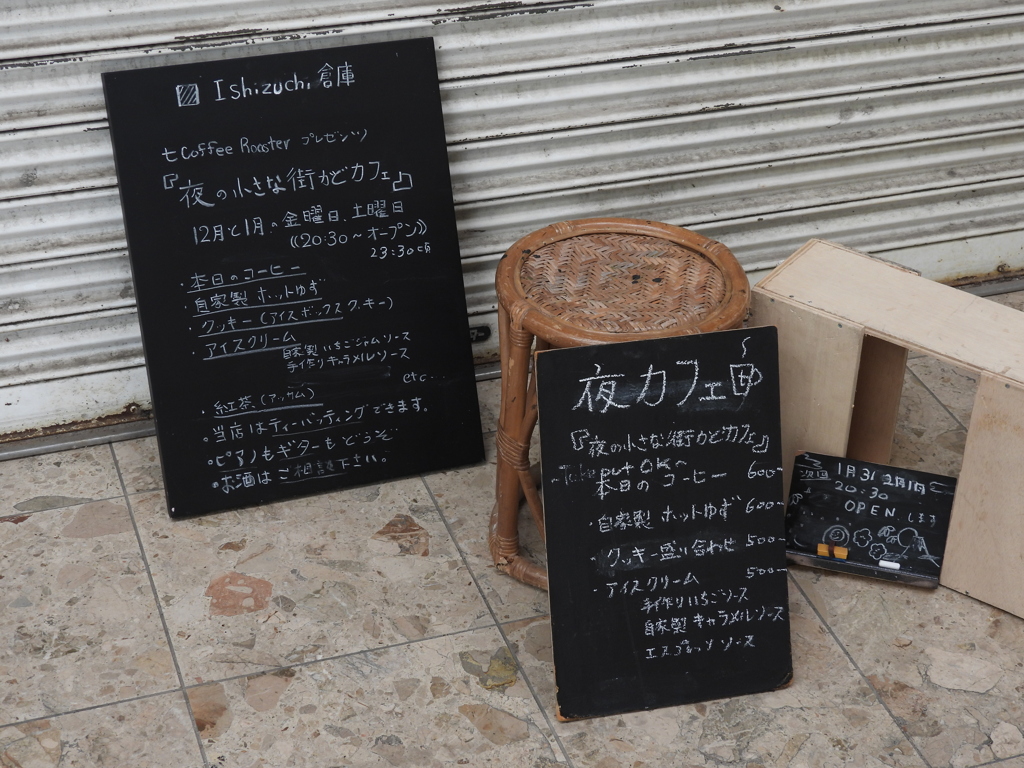 Ishizuchi 倉庫
七 Coffee Roaster プレゼンツ
『夜の小さな街かどカフェ』
12月と1月の金曜日、土曜日
《20:30～オープン》
23:30頃
・本日のコーヒー
・自家製 ホットゆず
・クッキー(アイスボックスクッキー)
・アイスクリーム
自家製いちごジャムソース
手作りキャラメルソース
etc…
・紅茶(アッサム)
。当店はティーバッティングできます。
。ピアノもギターもどうぞ
。お酒はご相談下さい。
夜カフェ
『夜の小さな街かどカフェ』
本日のコーヒー 600-
・自家製 ホットゆず 600-
クッキー盛り合わせ 500-
・アイスクリーム 500-
手作りいちごソース
自家製キャラメルソース
ソース
次回 1月31 2月1日
20:30
OPEN します